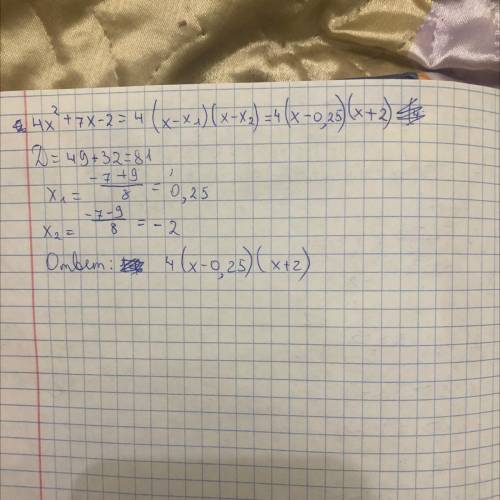 4x² + 7x - 2 = 4(x - x₁)(x - x₂) = 4(x - 0,25)(x + 2)
D = 49 + 32 = 81
x₁ = (-7 + 9)/8 = 0,25
x₂ = (-7 - 9)/8 = -2
Ответ: 4(x - 0,25)(x + 2)